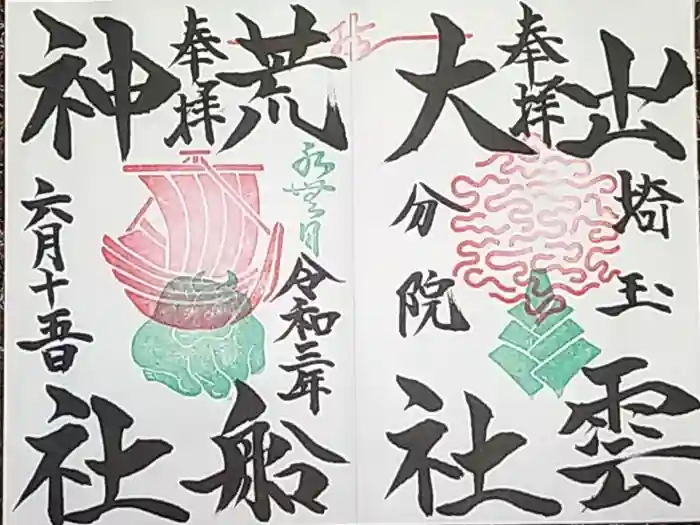 出雲
埼玉
奉拝
大社
分院
荒船
永無世日
令和三年
奉拝
神社
六月十五日